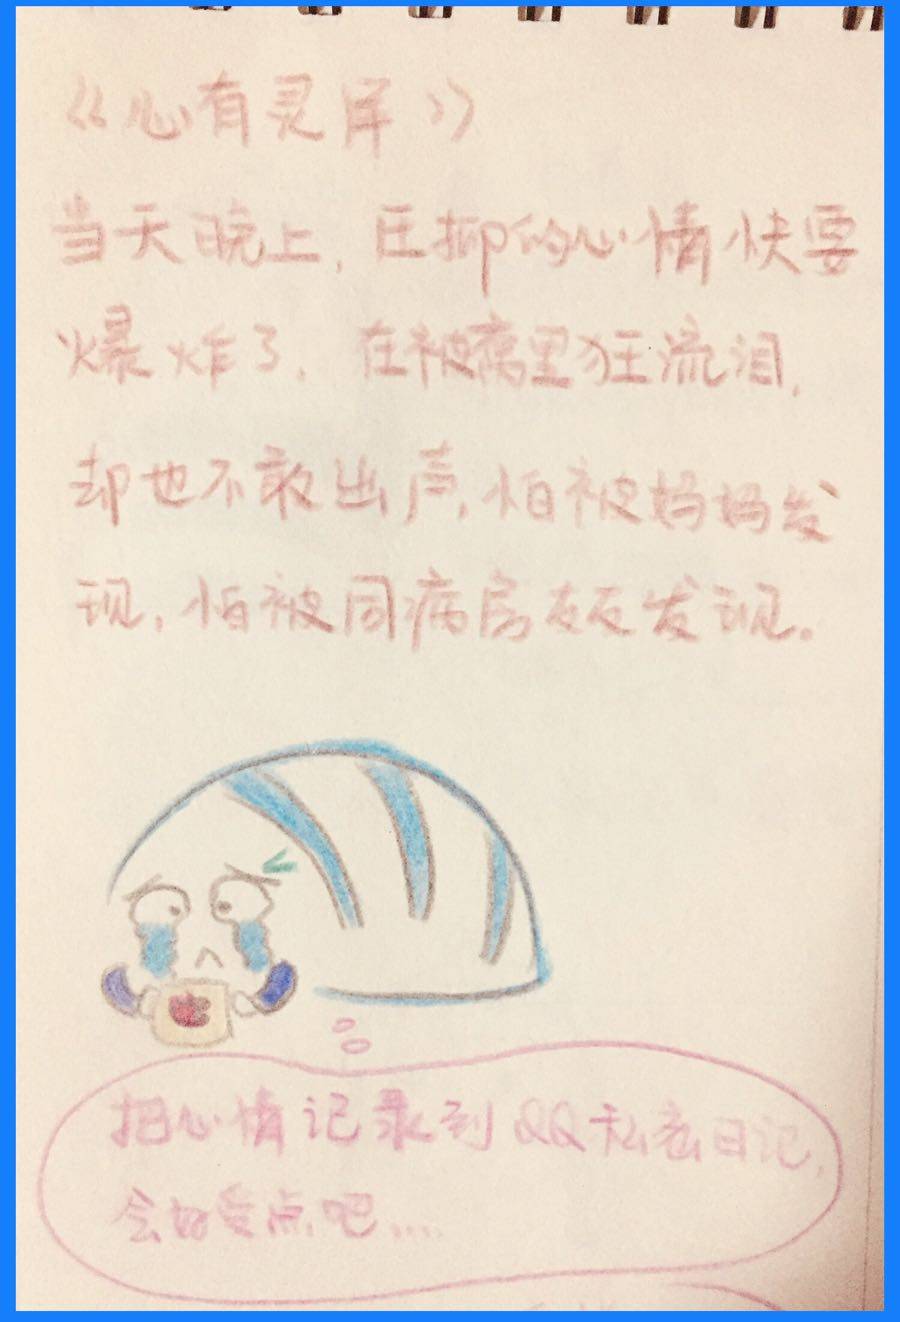 《心有灵犀》
当天晚上，压抑的心情快要
爆炸了，在被窝里狂流泪，
却也不敢出声，怕被妈妈发
现，怕被同病房友友发现。
把心情记录到QQ私密日记，
会好受点吧....